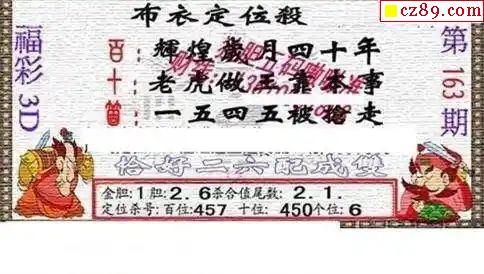 布衣定位殺
cz89.com
福彩3D
第163期
百十個:
輝煌歲月四十年
老虎做王靠本事
一五四五被搶走
恰好二六配成雙
金胆:1胆:2.6杀合值尾数:2.1.
定位杀号:百位:457 十位:450个位:6